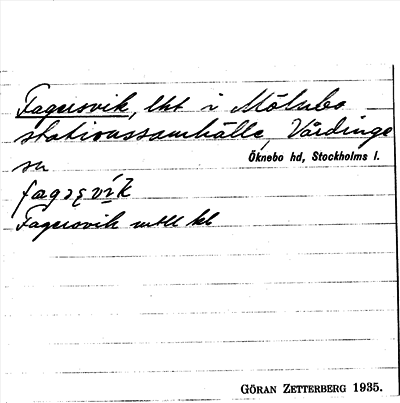 Fagersvik, lht i Mölnbo
stationssamhälle, Vårdinge
sn Öknebo hd, Stockholms l.
fagəṣvík
Fagersvik mtll kb
GÖRAN ZETTERBERG 1935.